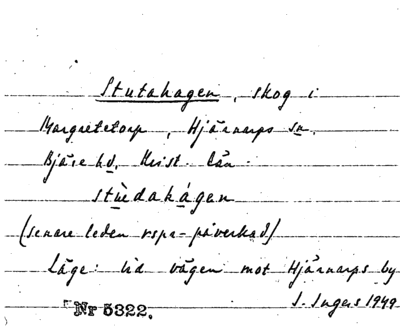 Stutahagen, skog i
Margretetorp, Hjärnarps sn.
Bjäre hd, Krist. län.
stùdahágen
(senare leden rspr-påverkad)
Läge: vid vägen mot Hjärnarps by
S. Ingers 1949
Nr 5322.